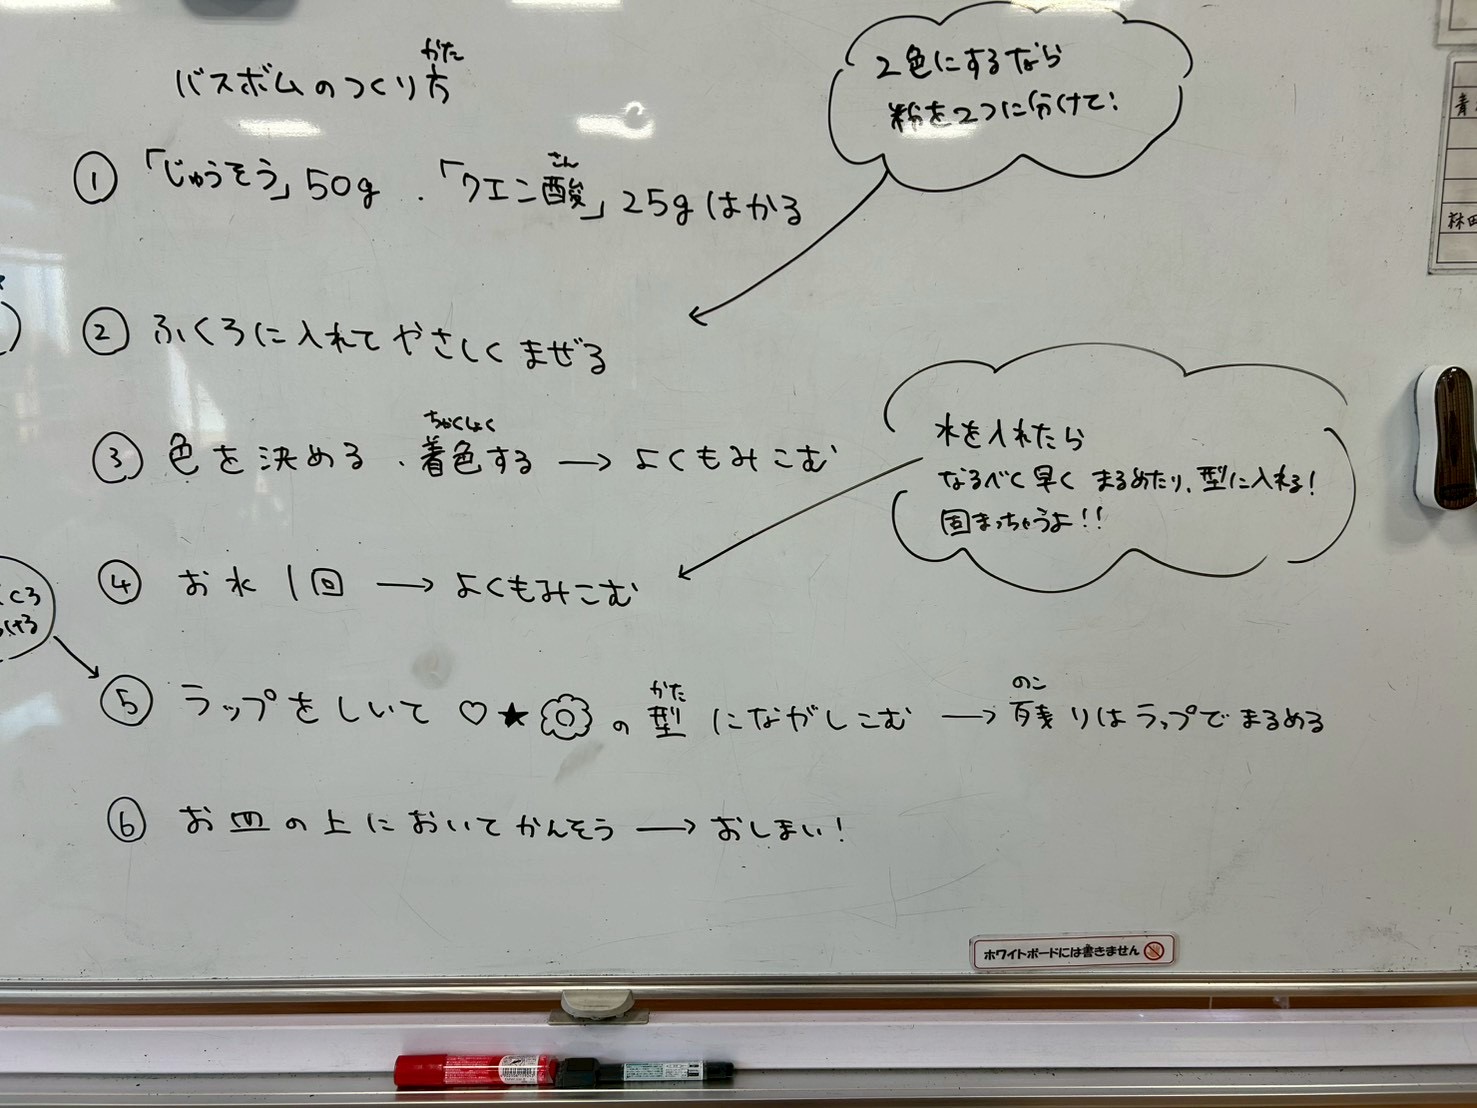 バスボムのつくり方
かた
① 「じゅうそう」50g ・「クエン酸」25gはかる
さん
2色にするなら
粉を2つに分けて!
② ふくろに入れてやさしくまぜる
③ 色を決める・着色する → よくもみこむ
ちゃくしょく
水を入れたら
なるべく早くまるめたり、型に入れる!
固まっちゃうよ!!
④ お水1回 → よくもみこむ
⑤ ラップをしいて♡★の型にながしこむ → 残りはラップでまるめる
かた
のこ
⑥ お皿の上においてかんそう → おしまい!
ホワイトボードには書きません